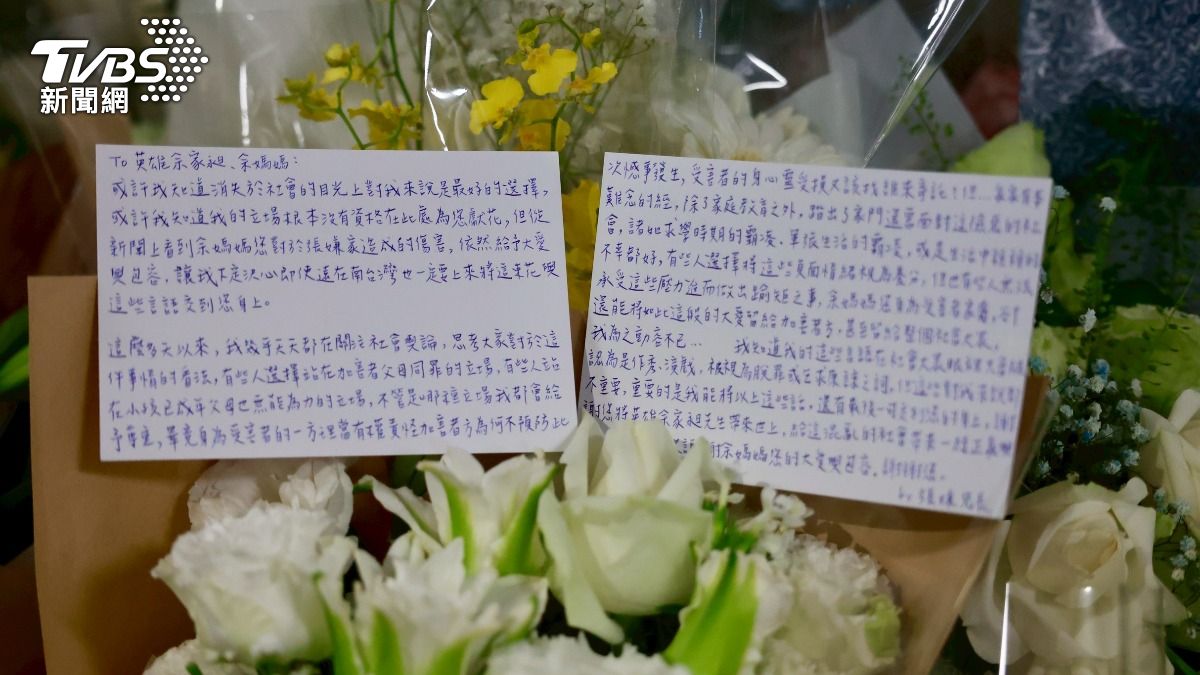 TVBS
新聞網
To 英雄余家昶、余媽媽：
或許我知道消失於社會的目光上對我來說是最好的選擇，
或許我知道我的立場根本沒有資格在此處為您獻花，但從
新聞上看到余媽媽您對於張嫌家造成的傷害，依然給予大愛
與包容，讓我下定決心即使遠在南台灣也一定要上來將這束花與
這些言語交到您身上。
這麼多天以來，我幾乎天天都在關注社會輿論，思考大家對於這
件事情的看法，有些人選擇站在加害者父母同罪的立場，有些人站
在小孩已成年父母也無能為力的立場，不管是哪種立場我都會給
予尊重，畢竟身為受害者的一方理當有權責怪加害者方為何不預防此
次憾事發生，受害者的身心靈受損又該找誰來寄託？但…家家有本
難念的經，除了家庭教育之外，踏出了家門還需面對這險惡的社
會，諸如求學時期的霸凌、軍旅生活的霸凌，或是生活中種種的
不幸都好，有些人選擇將這些負面情緒視為養分，但也有些人無法
承受這些壓力進而做出踰矩之事，余媽媽您身為受害者家屬，
還能將如此這般的大愛留給加害者方，甚至留給整個社會大眾，
我為之動容不已… 我知道我的這些言語在社會大眾眼裡
認為是作秀、演戲，被視為脫罪或乞求原諒之詞，但這些對我來說
不重要，重要的是我能將以上這些話，還有最後一句
謝您將英雄余家昶先生帶來世上，給這混亂的社會帶來一絲正義
余媽媽您的大愛與包容，謝謝您。
by 張嫌兄長